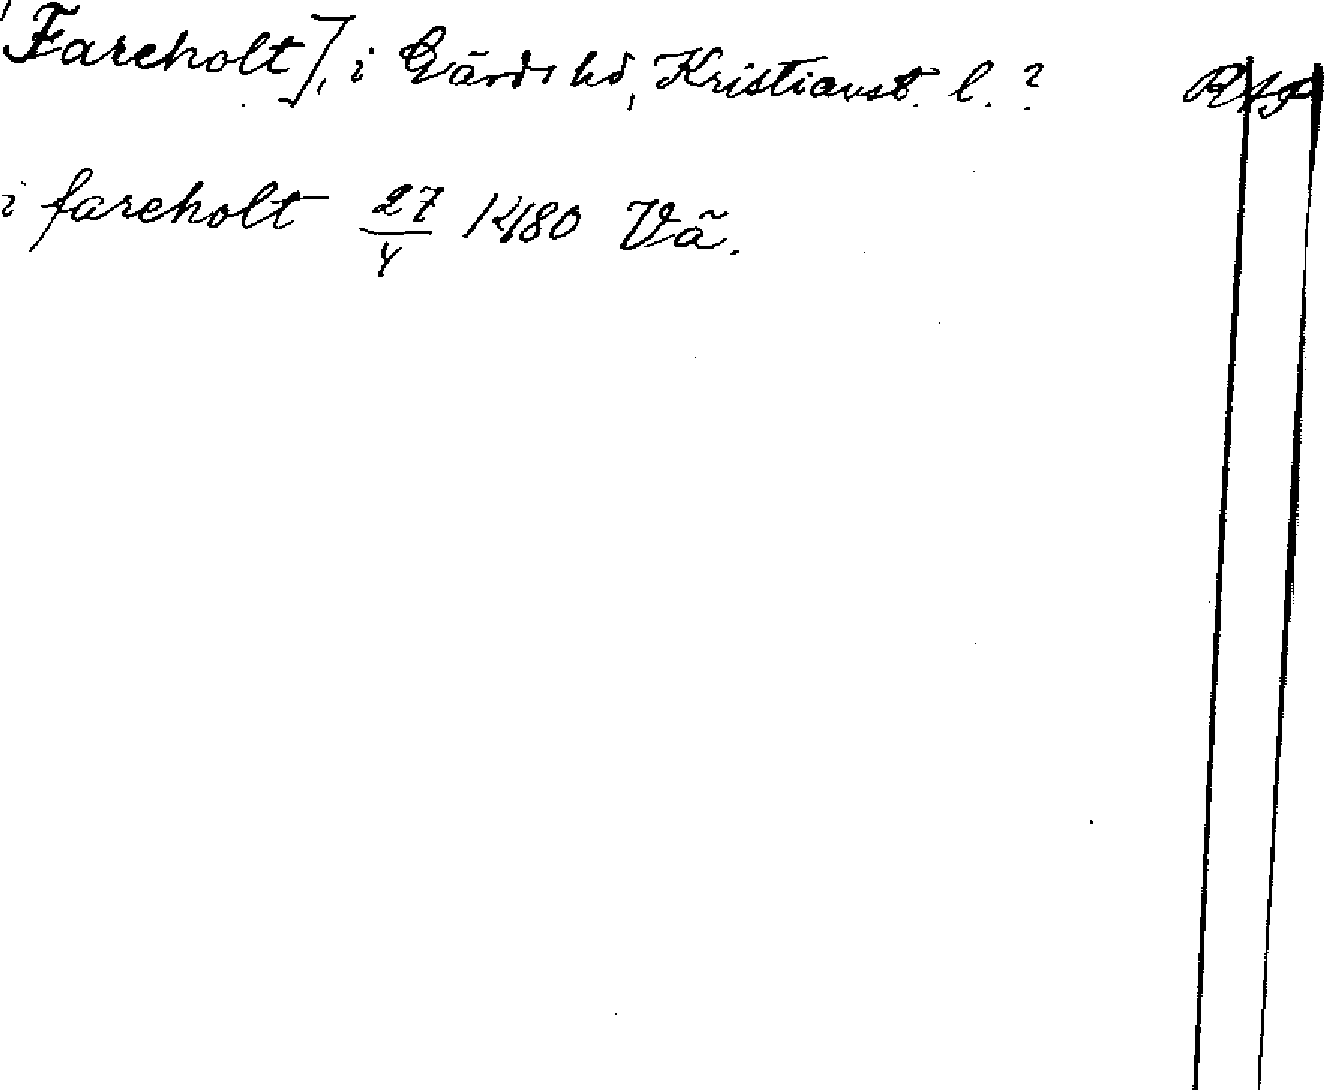 [Fareholt], i Gärds hd, Kristianst. l. ? RAP
i fareholt 27/4 1480 Vä.